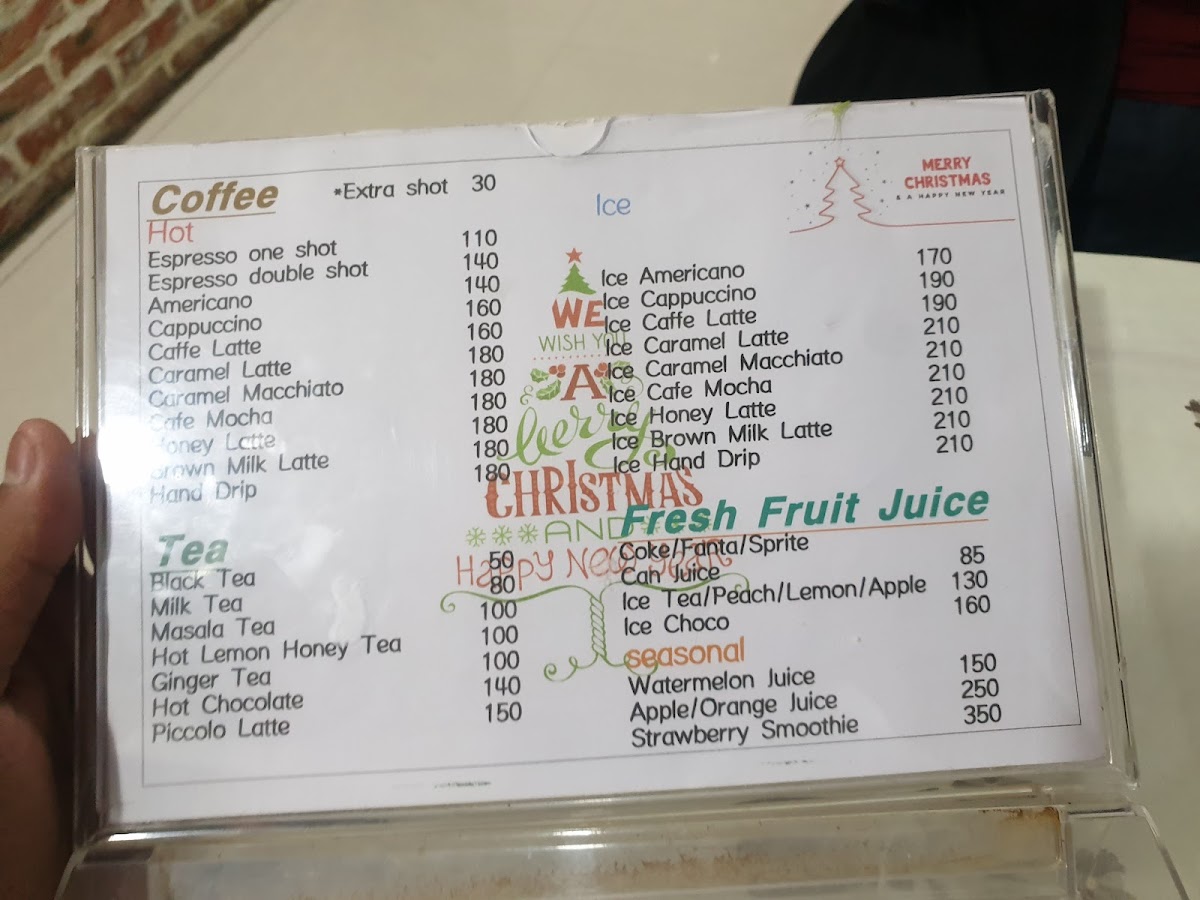 Coffee *Extra shot 30
Hot
Espresso one shot 110
Espresso double shot 140
Americano 140
Cappuccino 160
Caffe Latte 160
Caramel Latte 180
Caramel Macchiato 180
Cafe Mocha 180
Honey Latte 180
Brown Milk Latte 180
Hand Drip 180
Tea
Black Tea 50
Milk Tea 80
Masala Tea 100
Hot Lemon Honey Tea 100
Ginger Tea 100
Hot Chocolate 140
Piccolo Latte 150
WE
WISH YOU
A
berry
CHRISTMAS
AND
HAPPY NEW YEAR
MERRY
CHRISTMAS
& A HAPPY NEW YEAR
Ice
Ice Americano 170
Ice Cappuccino 190
Ice Caffe Latte 190
Ice Caramel Latte 210
Ice Caramel Macchiato 210
Ice Cafe Mocha 210
Ice Honey Latte 210
Ice Brown Milk Latte 210
Ice Hand Drip 210
Fresh Fruit Juice
Coke/Fanta/Sprite
Can Juice 85
Ice Tea/Peach/Lemon/Apple 130
Ice Choco 160
seasonal
Watermelon Juice 150
Apple/Orange Juice 250
Strawberry Smoothie 350